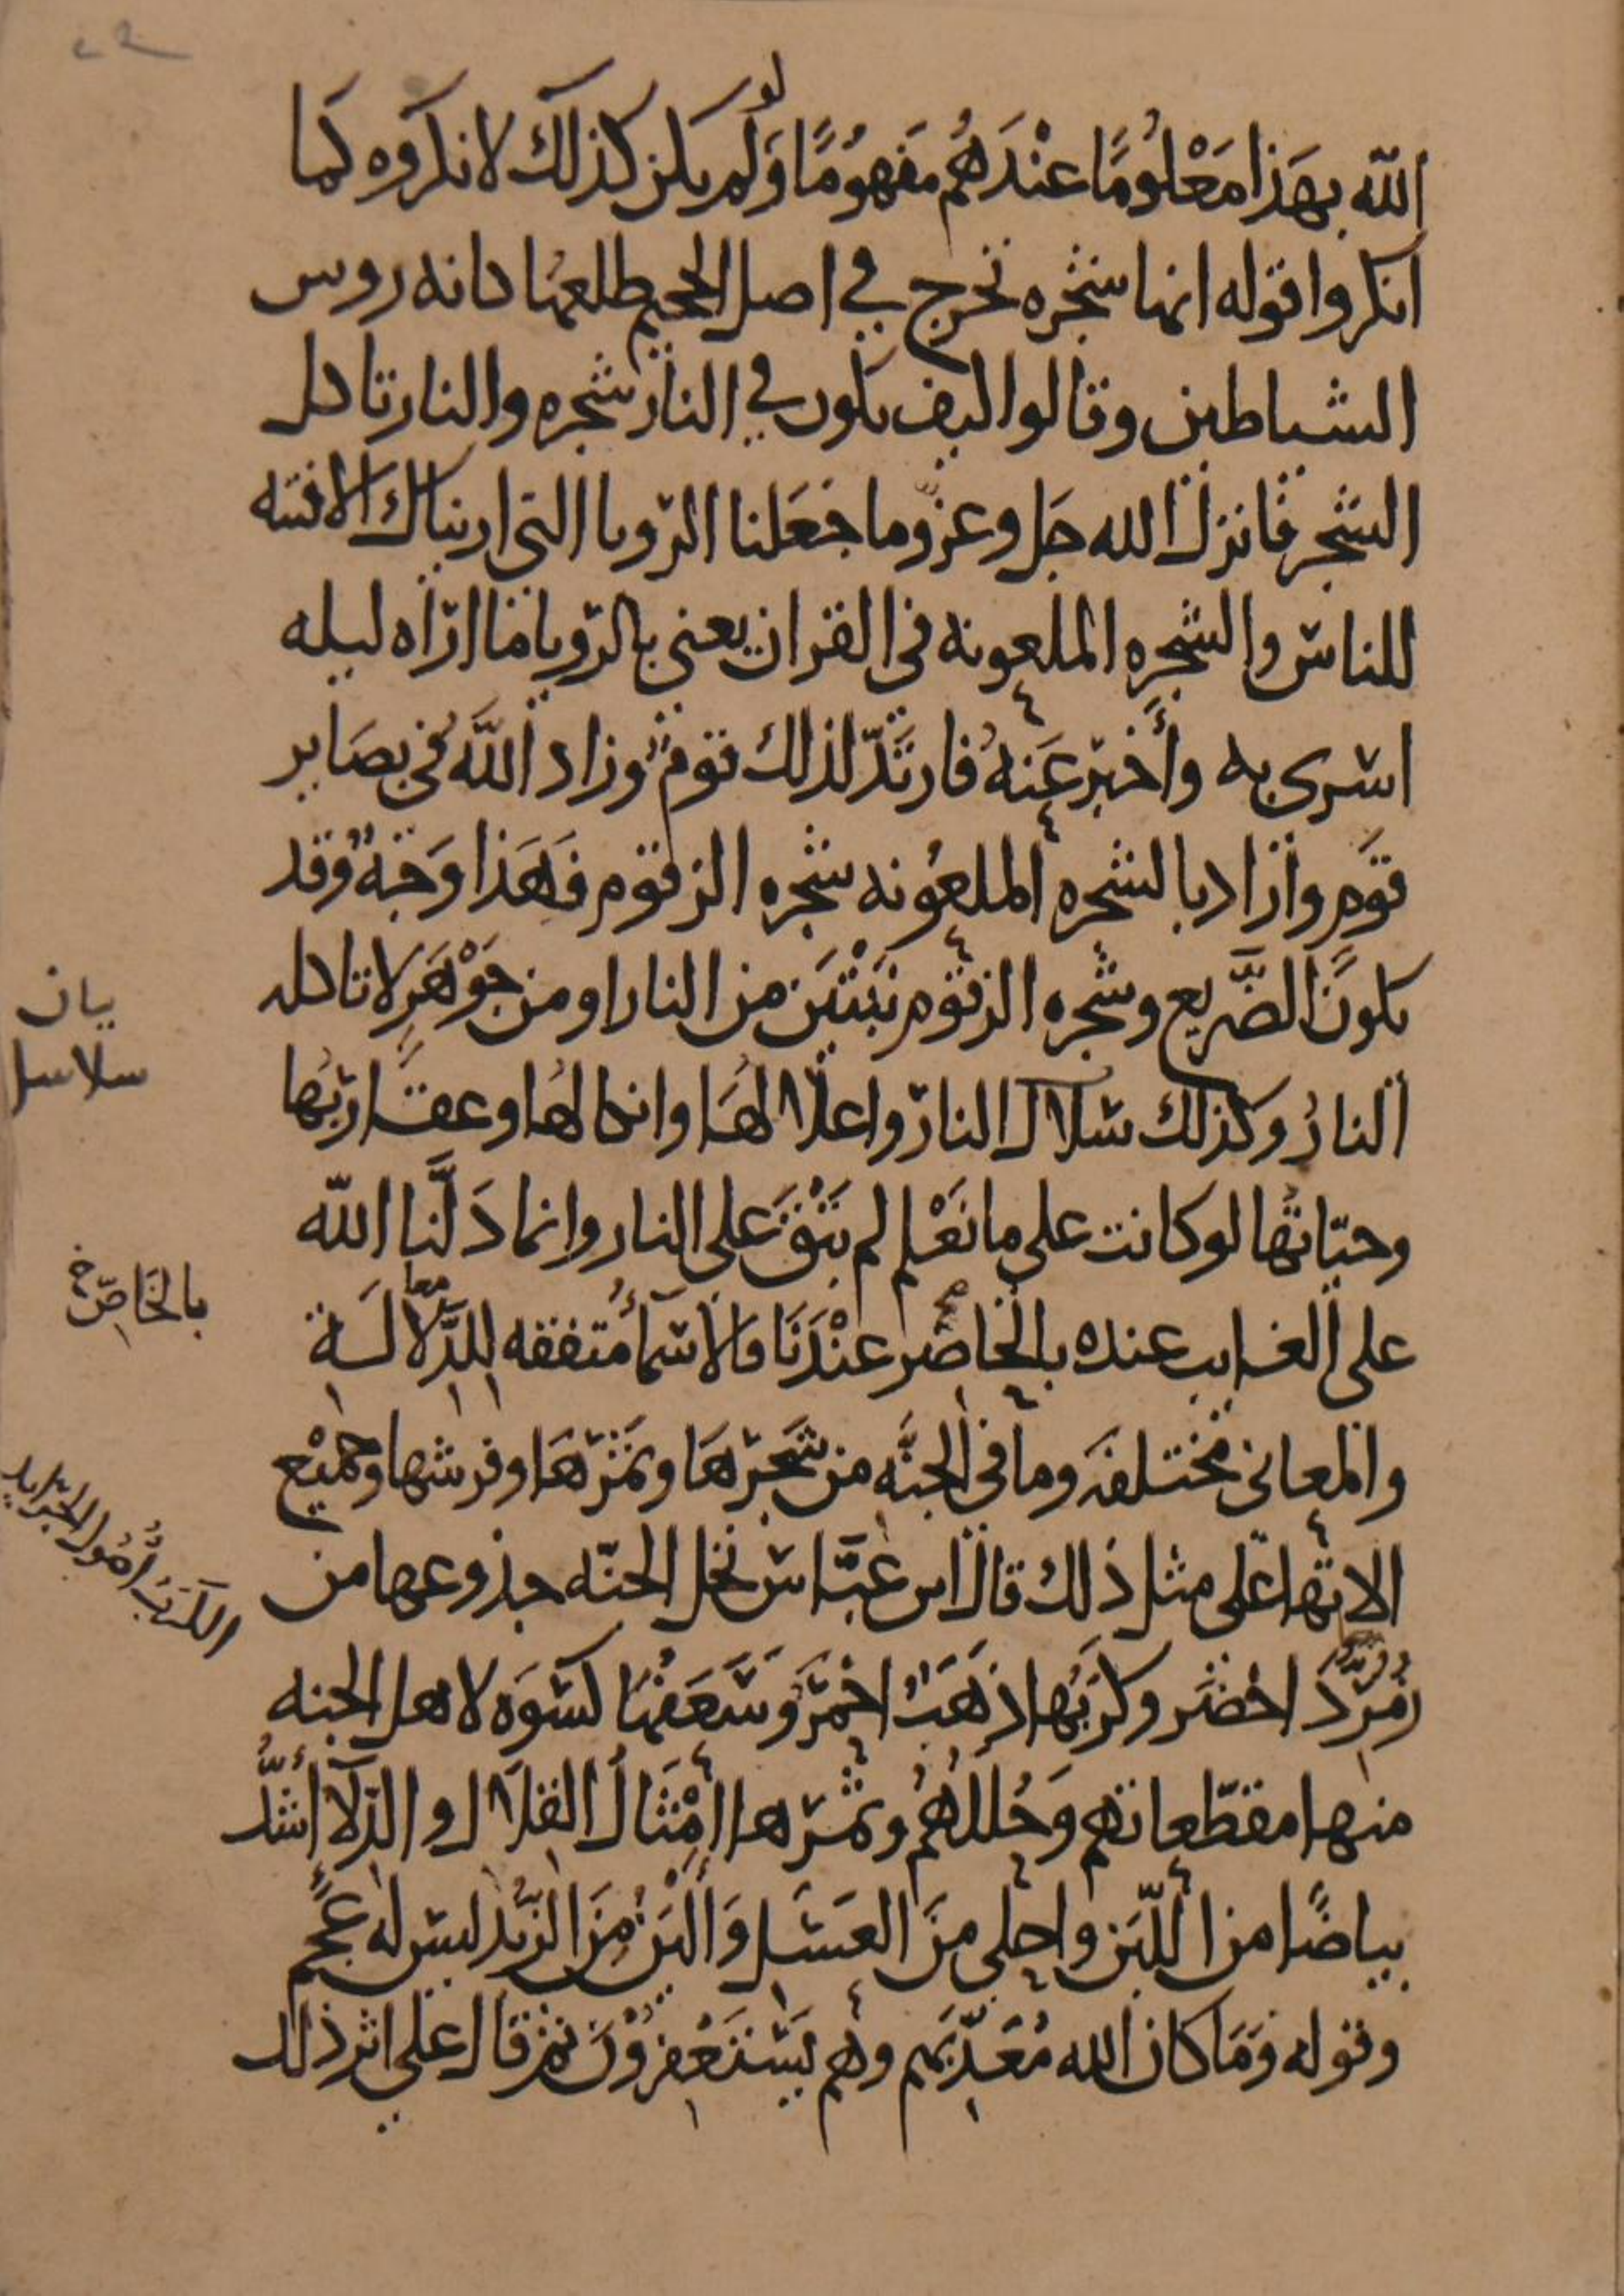 ٢٢
الله بهَذا مَعْلُومًا عنْدَهُم مَفهوُمًا وَلو لم يكن كذلك لانكروه كما
انكروا قوله انها شجره تخرج في اصل الجحيم طلعها كانه روس
الشياطين وقالوا كيف يكون في النار شجره والنار تاكل
الشجر فانزل الله جَل وعز وما جَعَلنا الرّويا التي اريناك الا فتنه
للناس والشجره الملعونه في القران يعني بالرّويا ما ارَاه ليله
اسرى به وأَخبرَ عَنهُ فارتَدّ لذلك قومٌ وزاد اللَّهُ في بصَاير
قوَم وارَاد بالشجره الملعُونه شجره الزقوم فهَذا وَجْهٌ وقد
يكونُ الضَّريع وشجره الزقوم نَبْتَيَن من النار او من جَوْهَرٍ لا تاكله
النارُ وكذلك سلال النار واغلالهَا وانكالهُا وعقَاربُها
وحيّاتهُا لو كانت على ما نَعْلم لم يَبْقَ على النار وانما دَلَّنا الله
على الغايب عنده بالحاضر عنْدَنَا فالاسَمأُ متفقه للدّلالَة
والمعاني مختلفَه وما في الجنَّه من شَجَرهَا وثمَرَهَا وفرشها وجمَيْع
الاتها على مثل ذلك قال ابن عبَّاس نخل الجنّه جذوعها من
زُمُرّدٌ اخضَر وكرَبُها ذَهَبٌ احْمرَ وَسَعَفُهَا كسْوَه لاهل الجنه
منها مقطّعاتهم وَحُلَلُهُم وثمَرها اَمْثَالُ القلال والدّلآ أشَدُّ
بياضًا من اللّبَن واحلى منَ العَسَل وَاَليَنُ مِنَ الزبْد ليس له عَجَمٌ
وقوله وَمَا كان الله مُعَذّبَهم وهُم يَسْتَغْفِرُوْنَ ثم قال على اثر ذلك
بيان
سلاسل
بالحَاضر خ
الكَرَبُ اُصُول الجَرَايد